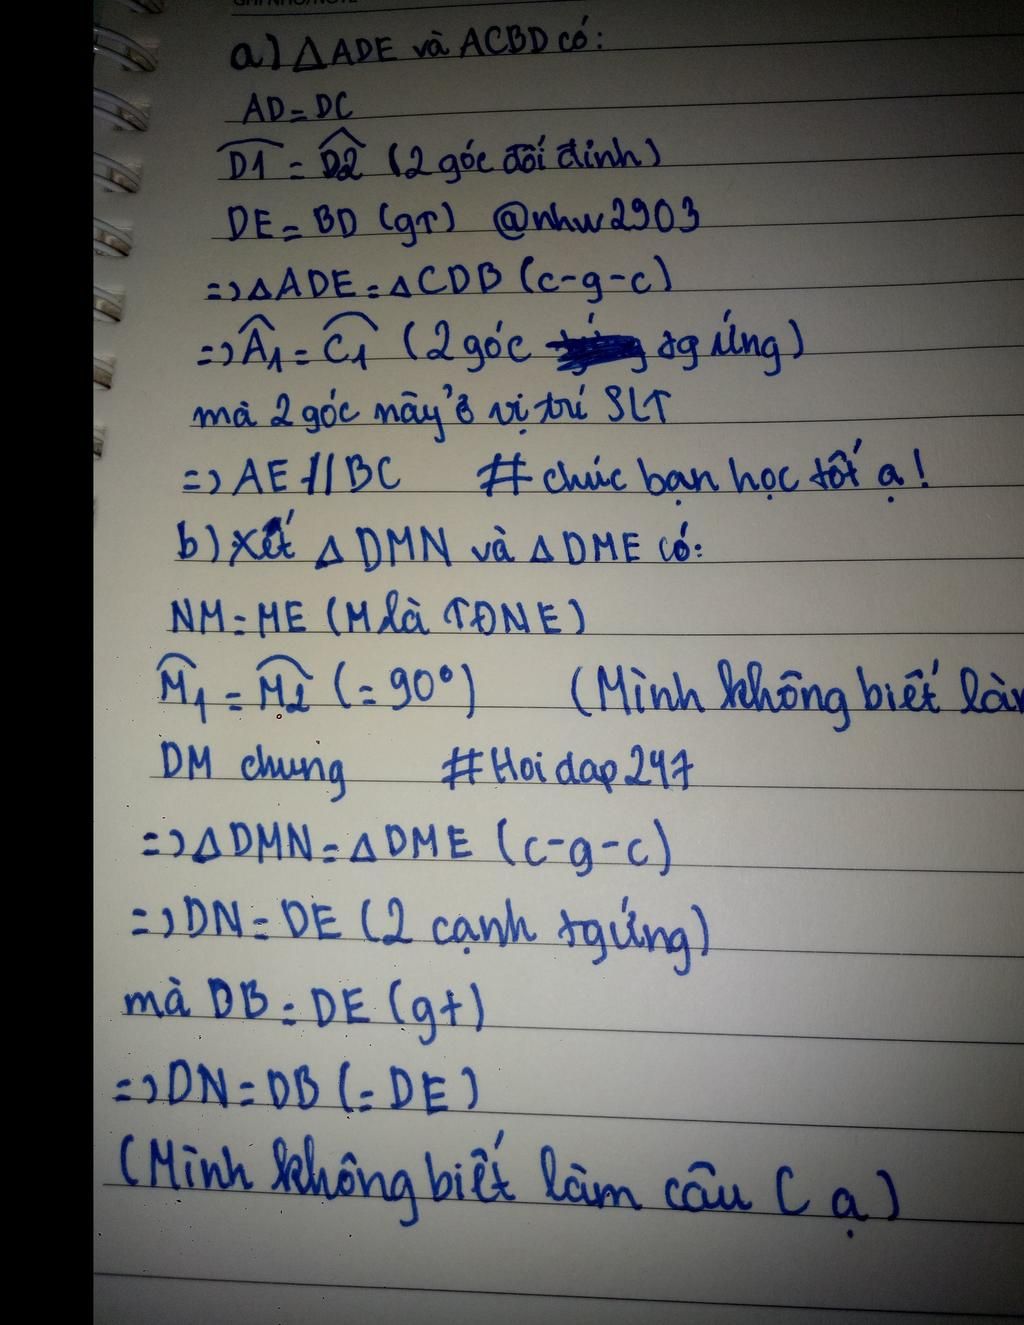 a) △ADE và ACBD có:
AD = DC
D1 = D2 (2 góc đối đỉnh)
DE = BD (gT) @nhw2903
=> △ADE = △CDB (c-g-c)
=> Â1 = Ĉ1 (2 góc tg ứng)
mà 2 góc này ở vị trí SLT
=> AE // BC # chúc bạn học tốt ạ!
b) xét △DMN và △DME có:
NM = ME (M là TĐNE)
M1 = M2 (= 90°) (Mình không biết làm
DM chung #Hoidap247
=> △DMN = △DME (c-g-c)
=> DN = DE (2 cạnh tg ứng)
mà DB = DE (gt)
=> DN = DB (= DE)
(Mình không biết làm câu C ạ)